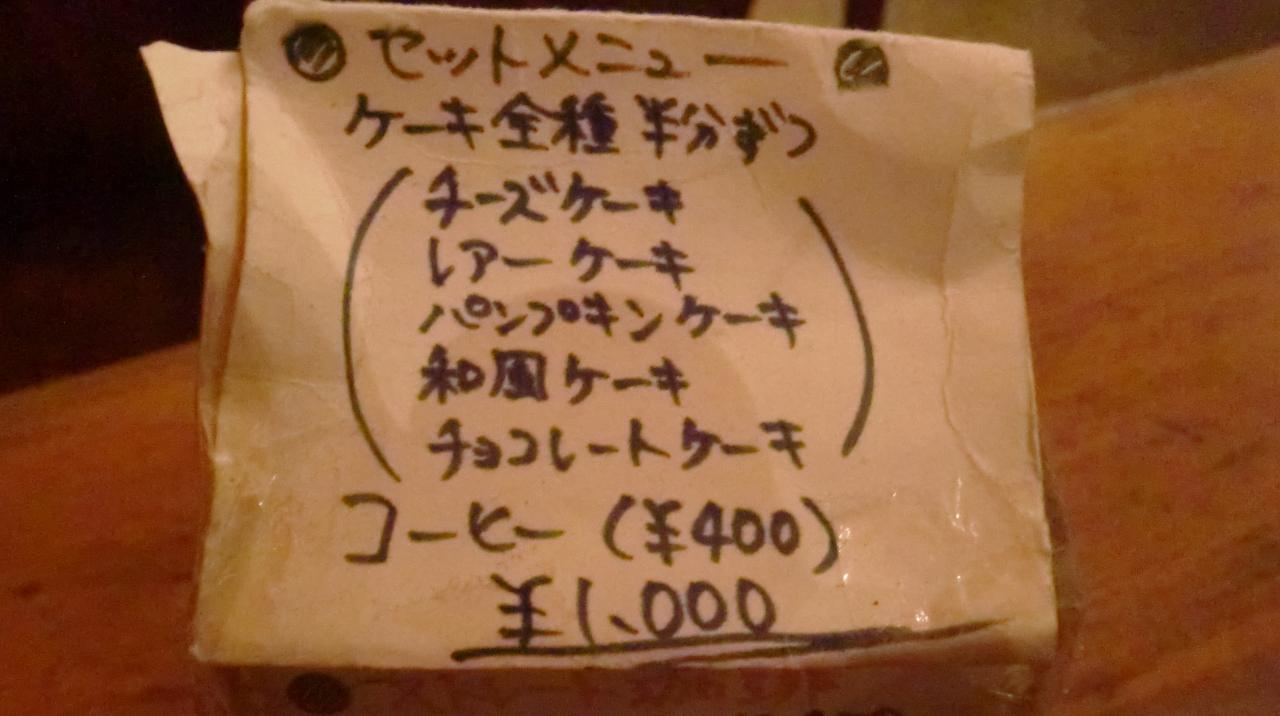 セットメニュー
ケーキ全種半分ずつ
(チーズケーキ
レアーケーキ
パンプキンケーキ
和風ケーキ
チョコレートケーキ)
コーヒー(¥400)
¥1,000